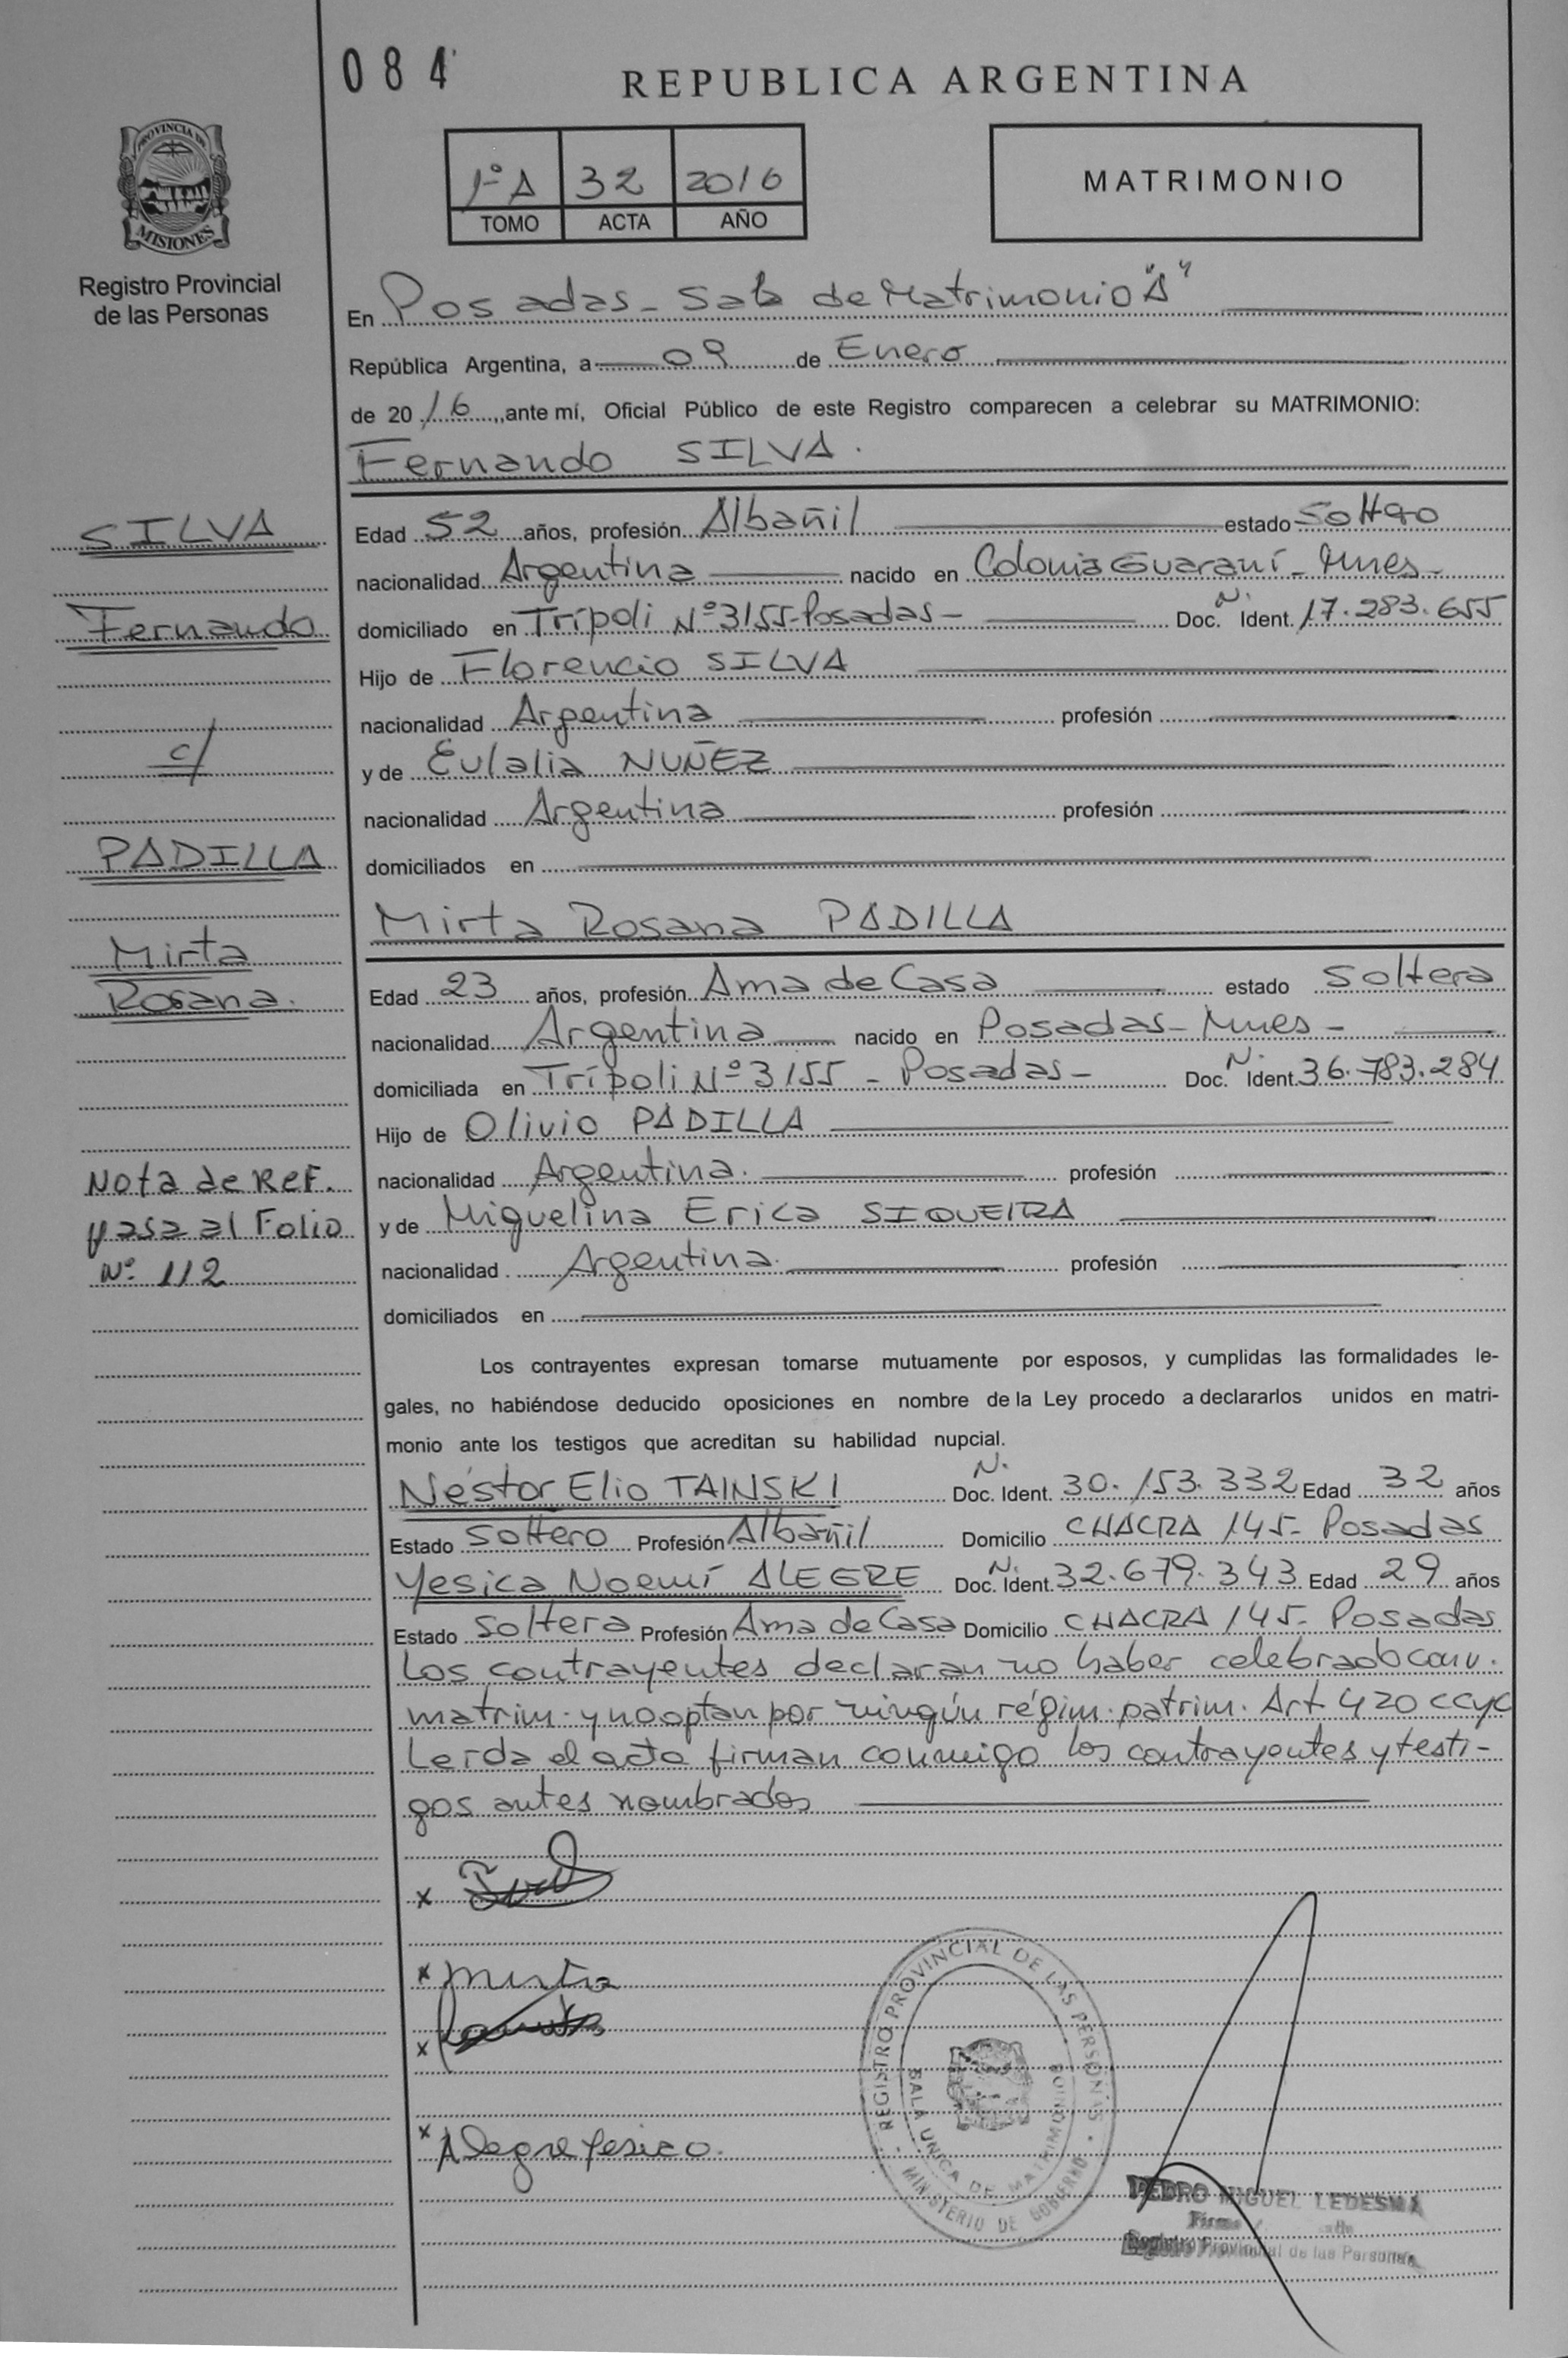 084
REPUBLICA ARGENTINA
PROVINCIA DE
MISIONES
Registro Provincial
de las Personas
1º A 32 2016
TOMO ACTA AÑO
MATRIMONIO
En Posadas - Sala de Matrimonio "A"
República Argentina, a 09 de Enero
de 2016, ante mí, Oficial Público de este Registro comparecen a celebrar su MATRIMONIO:
Fernando SILVA.
SILVA
Fernando
c/
PADILLA
Mirta
Rosana.
Nota de Ref.
pasa al Folio
Nº 112
Edad 52 años, profesión Albañil estado Soltero
nacionalidad Argentina nacido en Colonia Guaraní - Mnes -
domiciliado en Trípoli Nº 3155 - Posadas - Doc. N. Ident. 17.283.655
Hijo de Florencio SILVA
nacionalidad Argentina profesión
y de Eulalia NUÑEZ
nacionalidad Argentina profesión
domiciliados en
Mirta Rosana PADILLA
Edad 23 años, profesión Ama de Casa estado Soltera
nacionalidad Argentina nacido en Posadas - Mnes -
domiciliada en Trípoli Nº 3155 - Posadas - Doc. N. Ident. 36.783.284
Hijo de Olivio PADILLA
nacionalidad Argentina. profesión
y de Miguelina Erica SIQUEIRA
nacionalidad Argentina. profesión
domiciliados en
Los contrayentes expresan tomarse mutuamente por esposos, y cumplidas las formalidades le-
gales, no habiéndose deducido oposiciones en nombre de la Ley procedo a declararlos unidos en matri-
monio ante los testigos que acreditan su habilidad nupcial.
Néstor Elio TAINSKI Doc. N. Ident. 30.153.332 Edad 32 años
Estado Soltero Profesión Albañil Domicilio CHACRA 145 - Posadas
Yesica Noemí ALEGRE Doc. N. Ident. 32.679.343 Edad 29 años
Estado Soltera Profesión Ama de Casa Domicilio CHACRA 145 - Posadas
Los contrayentes declaran no haber celebrado conv.
matrim. y no optan por ningún régim. patrim. Art 420 CCyC
Leída el acta firman conmigo los contrayentes y testi-
gos antes nombrados
x
x Mirta
x
x Alegre Yesica.
REGISTRO PROVINCIAL DE LAS PERSONAS
SALA UNICA DE MATRIMONIOS
MINISTERIO DE GOBIERNO
PEDRO MIGUEL LEDESMA
Firma
Registro Provincial de las Personas